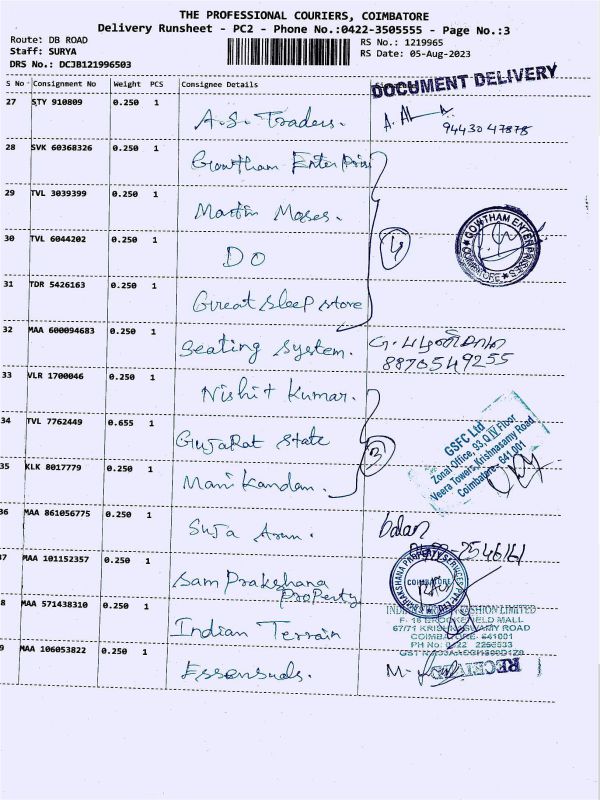 THE PROFESSIONAL COURIERS, COIMBATORE
Delivery Runsheet - PC2 - Phone No.:0422-3505555 - Page No.:3
Route: DB ROAD
Staff: SURYA
DRS No.: DCJB121996503
RS No.: 1219965
RS Date: 05-Aug-2023
DOCUMENT DELIVERY
S No Consignment No Weight PCS Consignee Details
27 STY 910809 0.250 1 A.S. Traders. 9443047878
28 SVK 60368326 0.250 1 Gowtham Enterprise
29 TVL 3039399 0.250 1 Martin Moses.
30 TVL 6044202 0.250 1 DO
GOWTHAM ENTERPRISES
COIMBATORE
31 TDR 5426163 0.250 1 Great sleep store
32 MAA 600094683 0.250 1 Seating System. 8870549255
33 VLR 1700046 0.250 1 Nishit Kumar.
34 TVL 7762449 0.655 1 Gujarat State
GSFC Ltd
Zonal Office, 93, Q IV Floor
Veera Towers, Krishnasamy Road
Coimbatore - 641 001
35 KLK 8017779 0.250 1 Manikandan.
36 MAA 861056775 0.250 1 Suja Arun. balan
37 MAA 101152357 0.250 1 Sam Prakshana Property
COIMBATORE
38 MAA 571438310 0.250 1 Indian Terrain
INDIAN TERRAIN FASHION LIMITED
F- 16 BROOKEFIELD MALL
67/71 KRISHNASWAMY ROAD
COIMBATORE- 641001
39 MAA 106053822 0.250 1 Essensuals.
RECEIVED